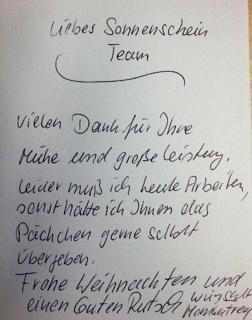 Liebes Sonnenschein
Team
Vielen Dank für Ihre
Mühe und große Leistung.
Leider muß ich heute Arbeiten,
sonst hätte ich Ihnen das
Päckchen gerne selbst
übergeben.
Frohe Weihnachten und
einen Guten Rutsch wünscht